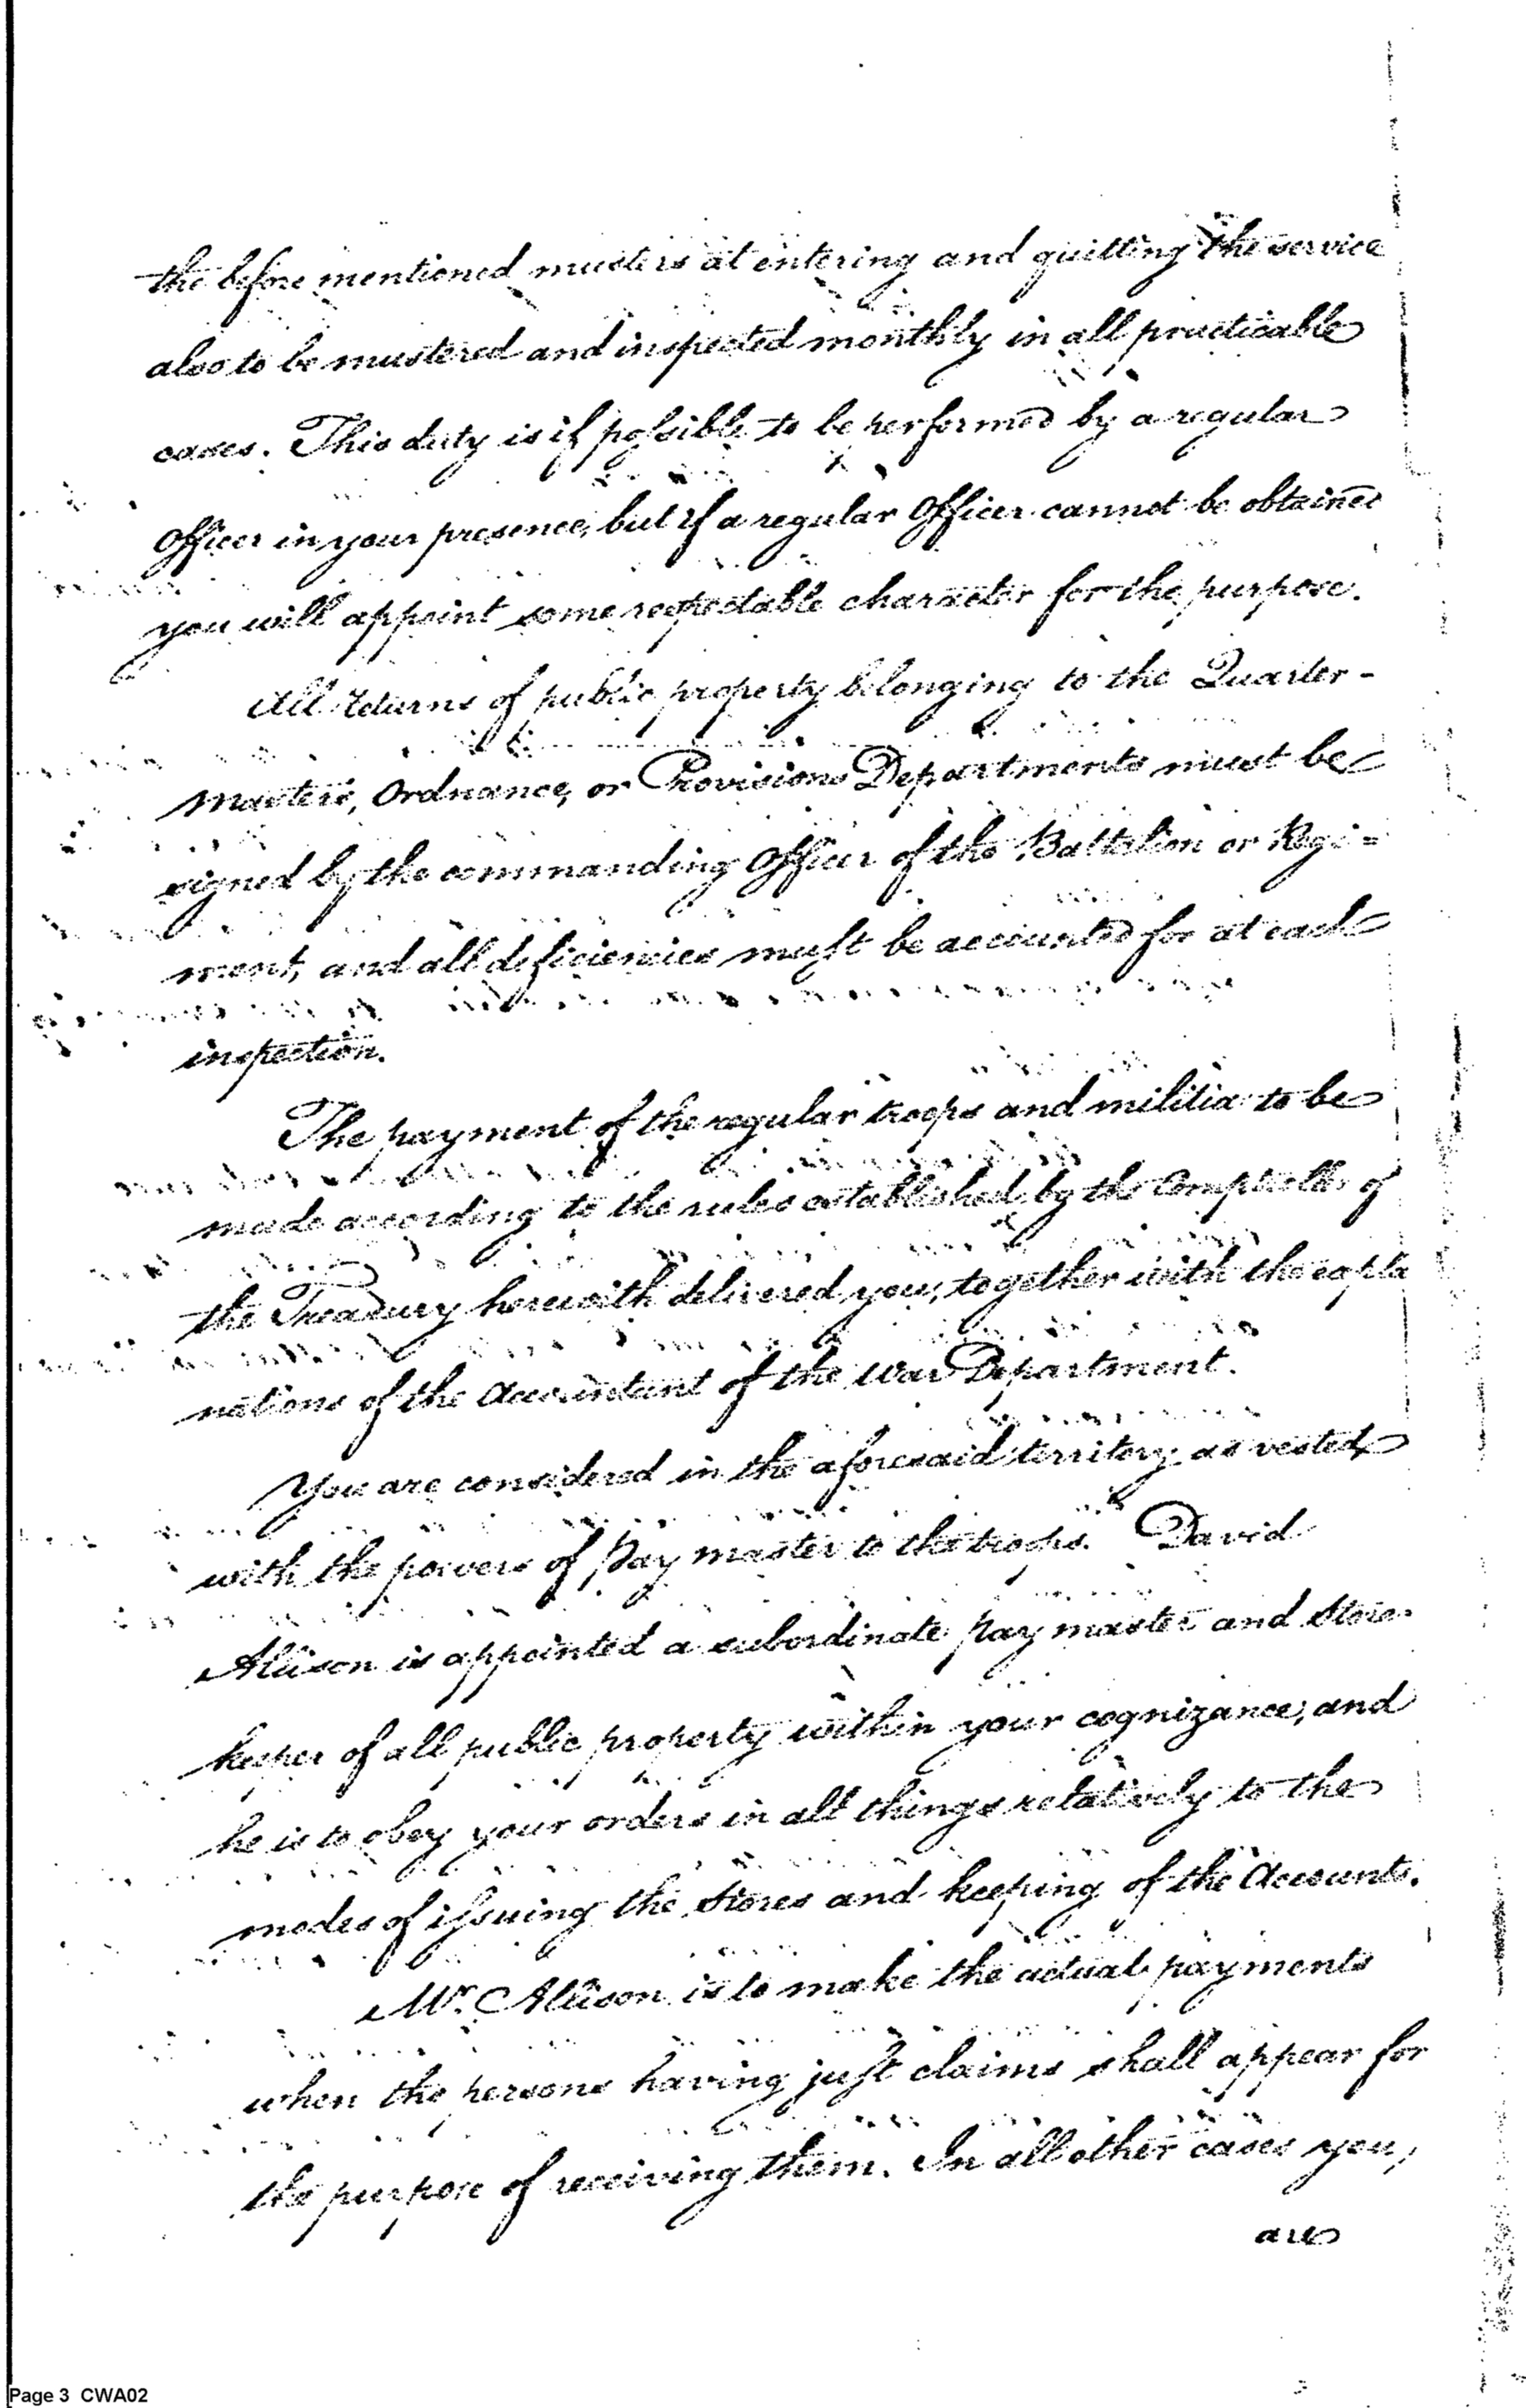 the before mentioned musters at entering and quitting the service
also to be mustered and inspected monthly in all practicable
cases. This duty is if possible to be performed by a regular
Officer in your presence, but if a regular Officer cannot be obtained
you will appoint some respectable character for the purpose.
All returns of public property belonging to the Quarter-
masters, Ordnance, or Provisions Departments must be
signed by the commanding Officer of the Battalion or Regi=
ment, and all deficiencies must be accounted for at each
inspection.
The payment of the regular troops and militia to be
made according to the rules established by the Comptroller of
the Treasury herewith delivered you, together with the expla
nations of the Accountant of the War Department.
You are considered in the aforesaid territory as vested
with the powers of Pay master to the troops. David
Allison is appointed a subordinate pay master and Store-
keeper of all public property within your cognizance, and
he is to obey your orders in all things relatively to the
modes of issuing the Stores and keeping of the Accounts.
Mr. Allison is to make the actual payments
when the persons having just claims shall appear for
the purpose of receiving them. In all other cases you,
are
Page 3 CWA02